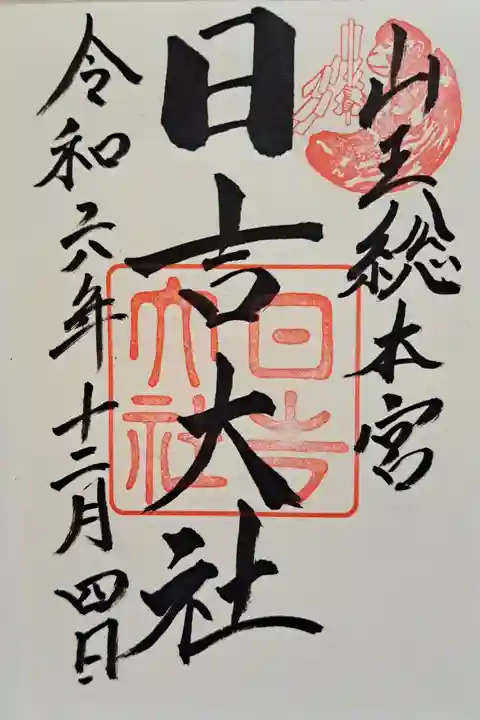 山王総本宮
日吉大社
令和六年十二月四日
日吉
大社